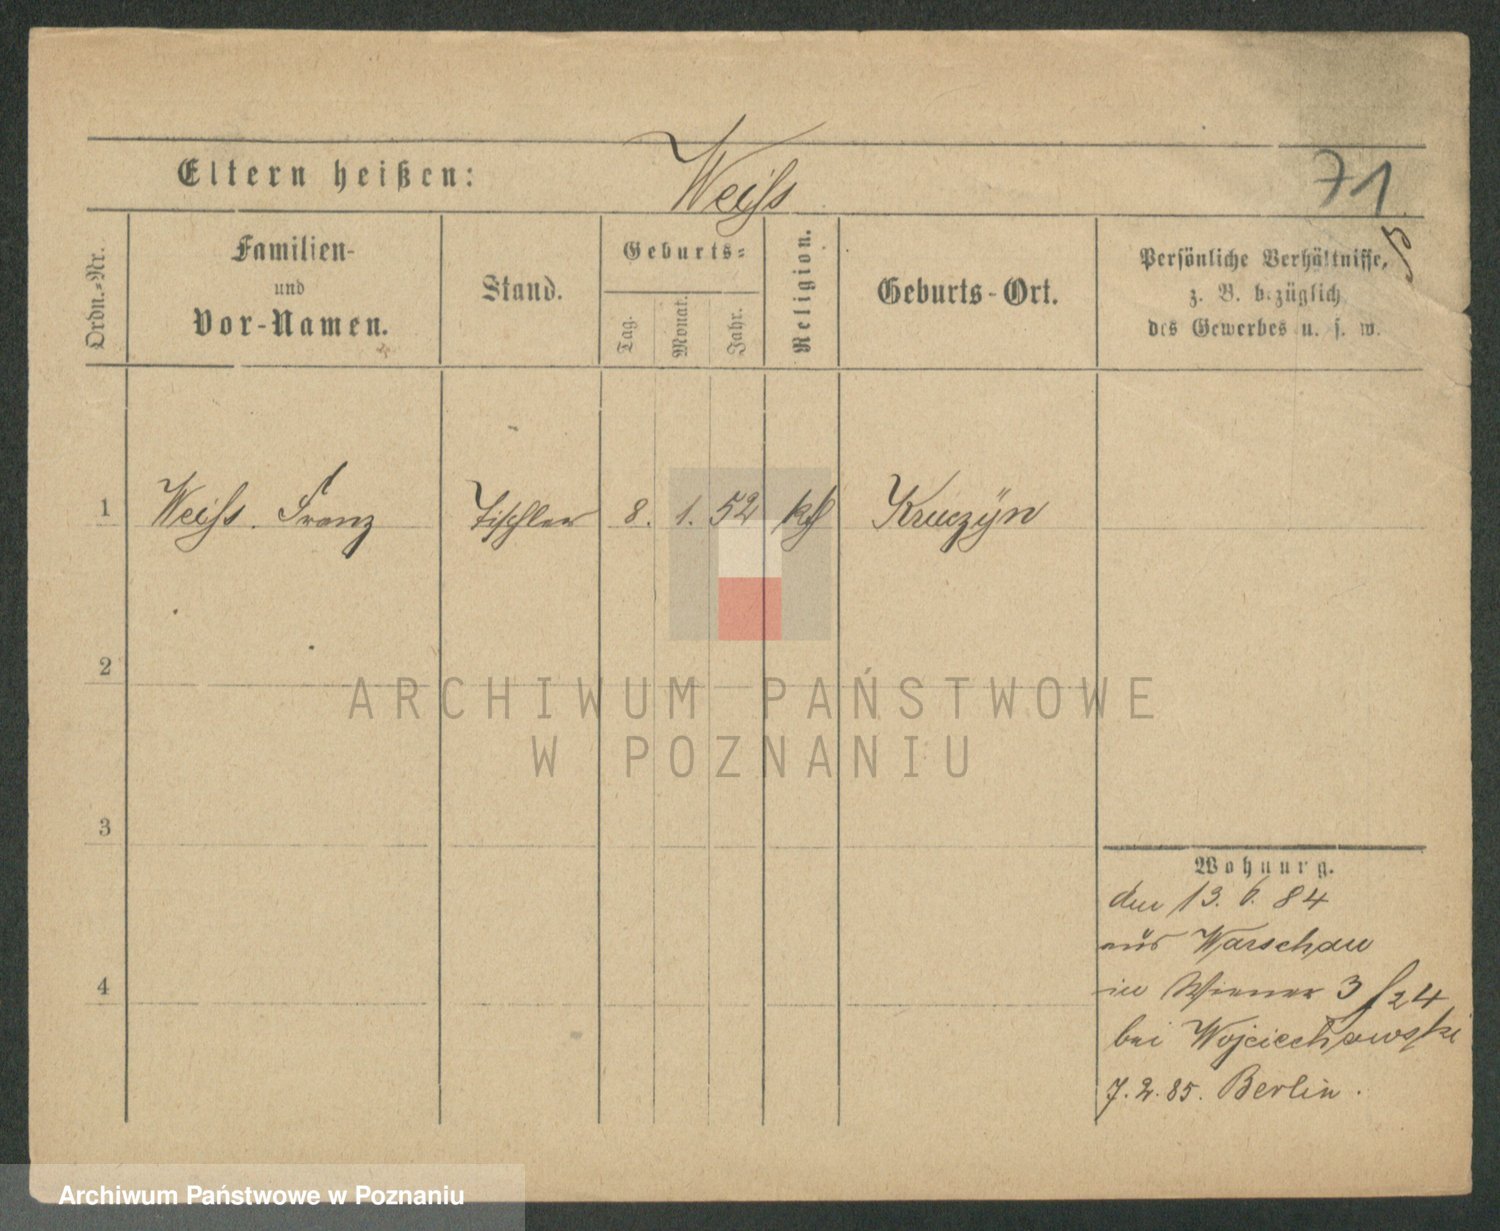 Eltern heißen: Weiß 71
Ordn.-Nr.
Familien- und Vor-Namen.
Stand.
Geburts-
Tag. Monat. Jahr.
Religion.
Geburts-Ort.
Persönliche Verhältnisse,
z. B. bezüglich
des Gewerbes u. s. w.
1 Weiß. Franz Tischler 8. 1. 52 kth Kruczÿn
2
3
4
Wohnung.
den 13. 6. 84
aus Warschau
in Wiener 3 / 24
bei Wojciechowski
7. 2. 85. Berlin.
ARCHIWUM PAŃSTWOWE
W POZNANIU
Archiwum Państwowe w Poznaniu